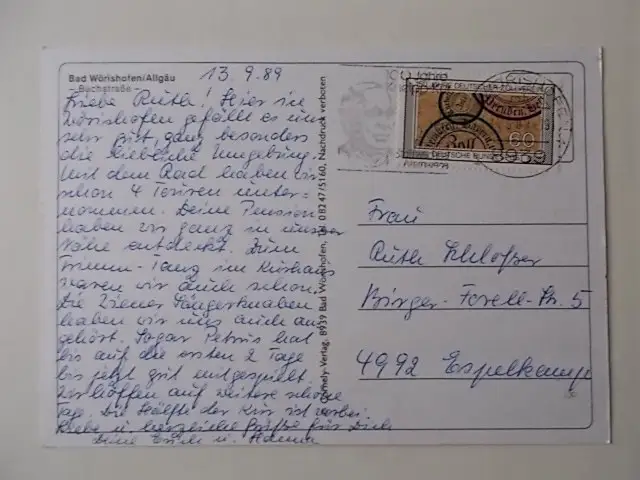 Bad Wörishofen/Allgäu
- Bachstraße -
13.9.89
Liebe Ruth! Hier in
Wörishofen gefällt es uns
sehr gut, ganz besonders
die liebliche Umgebung.
Mit dem Rad haben wir
schon 4 Touren unter=
nommen. Deine Pension
haben wir ganz in unserer
Nähe entdeckt. Zum
Trimm-Tanz im Kurhaus
waren wir auch schon.
Die Wiener Sängerknaben
haben wir uns auch an
gehört. Sogar Petrus hat
bis auf die ersten 2 Tage
bis jetzt gut mitgespielt.
Wir hoffen auf weitere schöne
Tage. Die Hälfte der Kur ist vorbei.
Liebe u. herzliche Grüße für Dich
Deine Erich u. Hanna
Verlag, 8939 Bad Wörishofen, Tel. 08247/5160, Nachdruck verboten
100 Jahre
60
DEUTSCHE BUNDES
8939
Frau
Ruth Schlosser
Birger-Forell-Str. 5
4992 Espelkamp